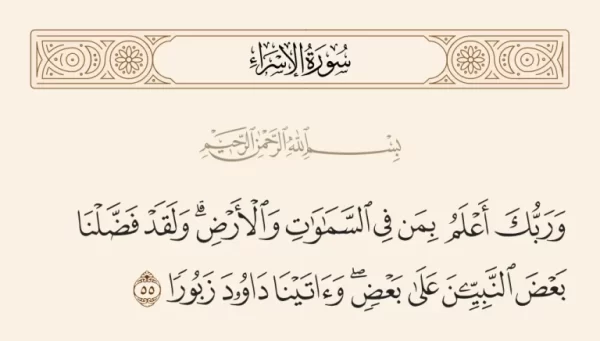 سُورَةُ الإِسْرَاءِ
بِسْمِ اللَّهِ الرَّحْمَٰنِ الرَّحِيمِ
وَرَبُّكَ أَعْلَمُ بِمَن فِي السَّمَٰوَٰتِ وَالْأَرْضِ ۗ وَلَقَدْ فَضَّلْنَا
بَعْضَ النَّبِيِّـۧنَ عَلَىٰ بَعْضٍ ۖ وَءَاتَيْنَا دَاوُۥدَ زَبُورًا ٥٥